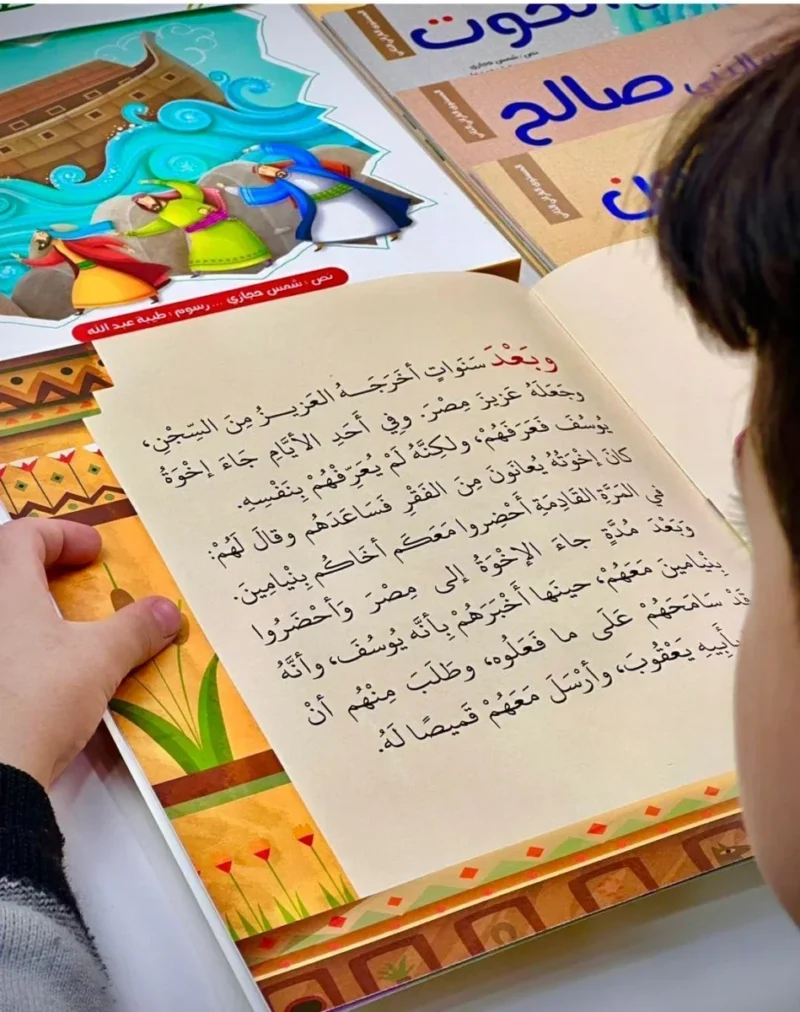 الحوت
نص : شمس حجازي
النبي صالح
نص : شمس حجازي ... رسوم : طيبة عبد الله
وبَعْدَ سَنَوَاتٍ أخَرَجَـــهُ العَزيــزُ مِنَ السِّجْنِ،
وجَعَلَهُ عَزيزَ مِصْرَ. وفِي أَحَدِ الأيَّامِ جَاءَ إخْوَةُ
يُوسُفَ فَعَرَفَهُمْ، ولكِنَّهُ لَمْ يُعَرِّفْهُمْ بِنَفْسِهِ.
كانَ إخْوَتُهُ يُعانَونَ مِنَ الفَقْرِ فَساعَدَهُم وقالَ لَهُمْ:
في المَرَّةِ القَادِمَةِ أَحْضروا مَعَكَم أخَاكُم بِنْيامِينَ.
وَبَعْدَ مُدَّةٍ جاءَ الإخْوَةُ إلى مِصْرَ وَأحْضَرُوا
بِنْيامينَ مَعَهُمْ، حينَها أَخْبَرَهُمْ بِأنَّه يُوسُفَ، وأنَّهُ
قَدْ سَامَحَهُمْ عَلَى ما فَعَلُوه، وطَلَبَ مِنْهُم أنْ
بِأَبِيهِ يَعْقُوبَ، وأرْسَلَ مَعَهُمْ قَميصًا لَهُ.